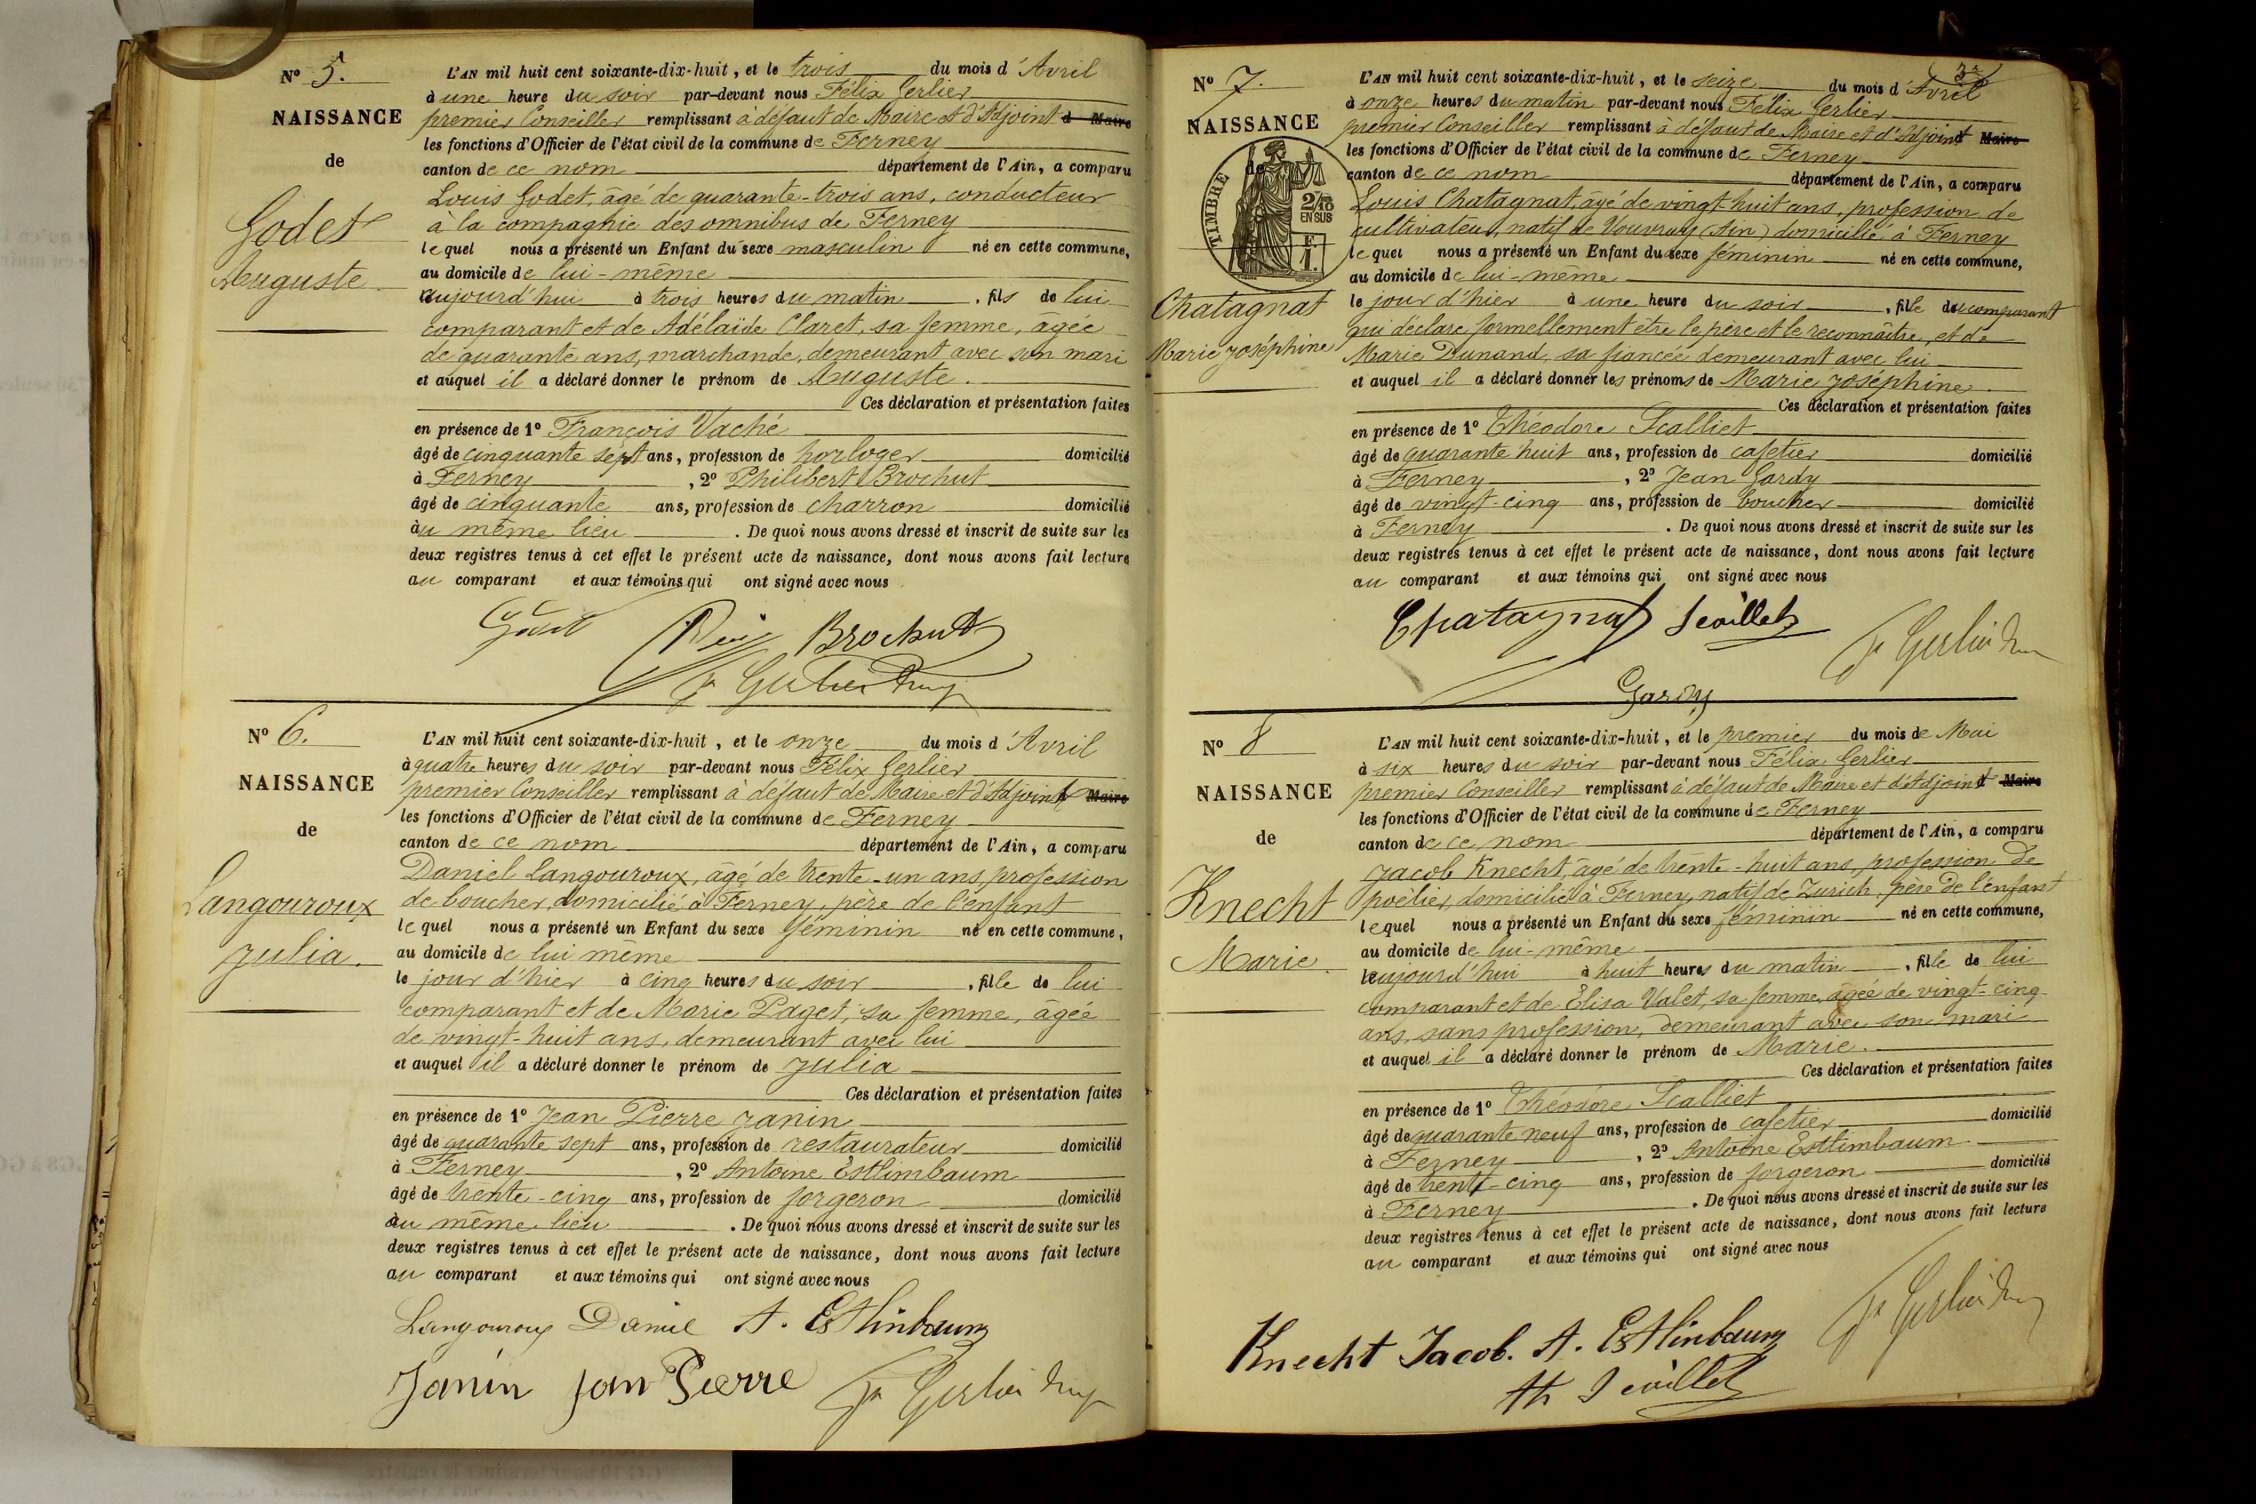 No 5.
NAISSANCE
de
Godet
Auguste
L'AN mil huit cent soixante-dix-huit, et le trois du mois d'Avril
à une heure du soir par-devant nous Félix Gerlier
premier Conseiller remplissant à défaut de Maire et d'Adjoint d Maire
les fonctions d'Officier de l'état civil de la commune de Ferney
canton de ce nom département de l'Ain, a comparu
Louis Godet, âgé de quarante-trois ans, conducteur
à la compagnie des omnibus de Ferney
lequel nous a présenté un Enfant du sexe masculin né en cette commune,
au domicile de lui-même
aujourd'hui à trois heures du matin, fils de lui
comparant et de Adélaïde Claret, sa femme, âgée
de quarante ans, marchande, demeurant avec son mari
et auquel il a déclaré donner le prénom de Auguste.
Ces déclaration et présentation faites
en présence de 1º François Vaché
âgé de cinquante sept ans, profession de horloger domicilié
à Ferney, 2º Philibert Brochut
âgé de cinquante ans, profession de charron domicilié
au même lieu. De quoi nous avons dressé et inscrit de suite sur les
deux registres tenus à cet effet le présent acte de naissance, dont nous avons fait lecture
au comparant et aux témoins qui ont signé avec nous
Godet Brochut
No 6.
NAISSANCE
de
Langouroux
Julia.
L'AN mil huit cent soixante-dix-huit, et le onze du mois d'Avril
à quatre heures du soir par-devant nous Félix Gerlier
premier Conseiller remplissant à défaut de Maire et d'Adjoint Maire
les fonctions d'Officier de l'état civil de la commune de Ferney
canton de ce nom département de l'Ain, a comparu
Daniel Langouroux, âgé de trente-un ans, profession
de boucher, domicilié à Ferney, père de l'enfant
lequel nous a présenté un Enfant du sexe féminin né en cette commune,
au domicile de lui même
le jour d'hier à cinq heures du soir, fille de lui
comparant et de Marie Paget, sa femme, âgée
de vingt-huit ans, demeurant avec lui
et auquel il a déclaré donner le prénom de Julia
Ces déclaration et présentation faites
en présence de 1º Jean Pierre Janin
âgé de quarante sept ans, profession de restaurateur domicilié
à Ferney, 2º Antoine Estlimbaum
âgé de trente-cinq ans, profession de forgeron domicilié
au même lieu. De quoi nous avons dressé et inscrit de suite sur les
deux registres tenus à cet effet le présent acte de naissance, dont nous avons fait lecture
au comparant et aux témoins qui ont signé avec nous
Langouroux Daniel A. Estlinbaum
Janin jan Pierre
No 7.
NAISSANCE
de
TIMBRE
2/10
EN SUS
F.
1.
Chatagnat
Marie Joséphine
L'AN mil huit cent soixante-dix-huit, et le seize du mois d'Avril
à onze heures du matin par-devant nous Félix Gerlier
premier Conseiller remplissant à défaut de Maire et d'Adjoint Maire
les fonctions d'Officier de l'état civil de la commune de Ferney
canton de ce nom département de l'Ain, a comparu
Louis Chatagnat, âgé de vingt-huit ans, profession de
cultivateur, natif de Vouvray (Ain) domicilié à Ferney
lequel nous a présenté un Enfant du sexe féminin né en cette commune,
au domicile de lui-même
le jour d'hier à une heure du soir, fille du comparant
qui déclare formellement être le père et le reconnaître, et de
Marie Dunand, sa fiancée demeurant avec lui
et auquel il a déclaré donner les prénoms de Marie Joséphine.
Ces déclaration et présentation faites
en présence de 1º Théodore Scalliet
âgé de quarante huit ans, profession de cafetier domicilié
à Ferney, 2º Jean Gardy
âgé de vingt-cinq ans, profession de boucher domicilié
à Ferney. De quoi nous avons dressé et inscrit de suite sur les
deux registres tenus à cet effet le présent acte de naissance, dont nous avons fait lecture
au comparant et aux témoins qui ont signé avec nous
Chatagnat
Gardy
No 8
NAISSANCE
de
Knecht
Marie.
L'AN mil huit cent soixante-dix-huit, et le premier du mois de Mai
à six heures du soir par-devant nous Félix Gerlier
premier Conseiller remplissant à défaut de Maire et d'Adjoint Maire
les fonctions d'Officier de l'état civil de la commune de Ferney
canton de ce nom département de l'Ain, a comparu
Jacob Knecht, âgé de trente-huit ans, profession de
poêlier, domicilié à Ferney, natif de Zurich, père de l'enfant
lequel nous a présenté un Enfant du sexe féminin né en cette commune,
au domicile de lui-même
aujourd'hui à huit heures du matin, fille de lui
comparant et de Elisa Valet, sa femme, âgée de vingt-cinq
ans, sans profession, demeurant avec son mari
et auquel il a déclaré donner le prénom de Marie.
Ces déclaration et présentation faites
en présence de 1º Théodore Scalliet
âgé de quarante neuf ans, profession de cafetier domicilié
à Ferney, 2º Antoine Estlimbaum
âgé de trente-cinq ans, profession de forgeron domicilié
à Ferney. De quoi nous avons dressé et inscrit de suite sur les
deux registres tenus à cet effet le présent acte de naissance, dont nous avons fait lecture
au comparant et aux témoins qui ont signé avec nous
Knecht Jacob. A. Estlinbaum